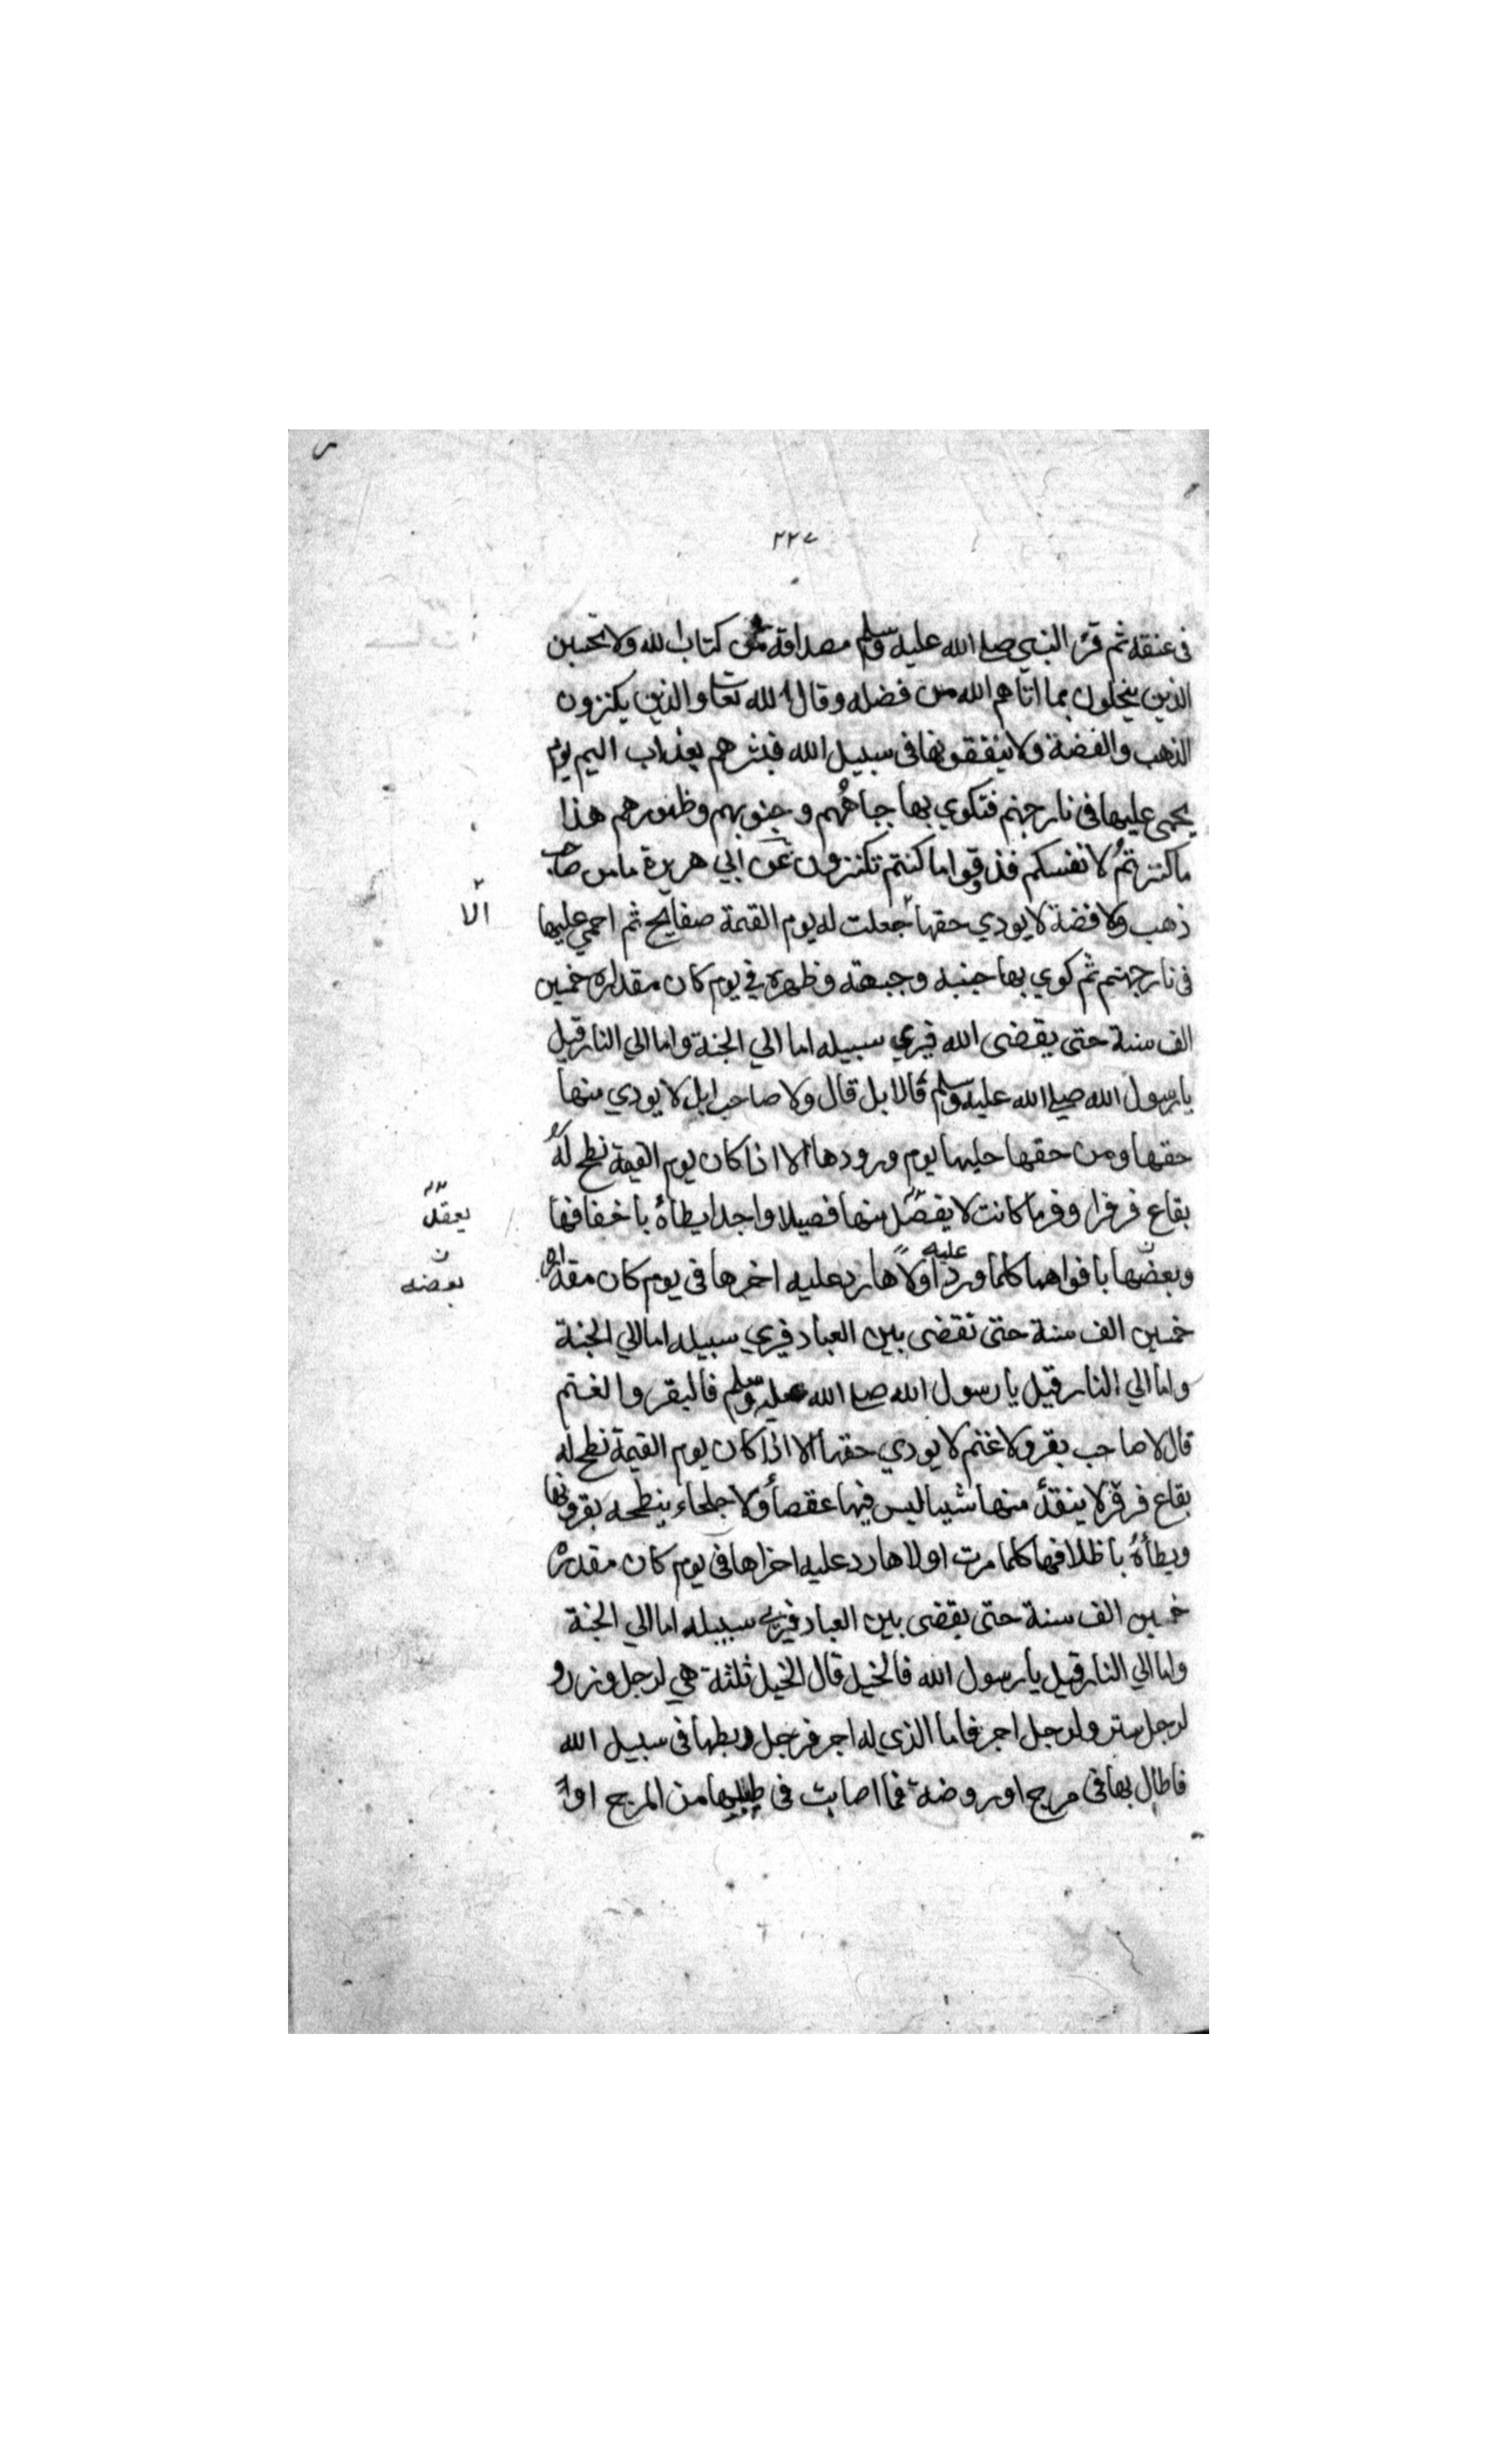 ٢٢٧
فى عنقه ثم قرء النبي صلى الله عليه وسلم مصداقه من كتاب الله ولا تحسبن
الذين يبخلون بما اتاهم الله من فضله وقال الله تعا والذين يكنزون
الذهب والفضة ولا ينفقونها فى سبيل الله فبشرهم بعذاب اليم يوم
يحمى عليها فى نار جهنم فتكوي بها جباههم وجنوبهم وظهورهم هذا
ما كنزتم لانفسكم فذوقوا ما كنتم تكنزون عن ابي هريرة ما من صاحب
ذهب ولا فضة لا يودي حقها جعلت له يوم القيمة صفايح ثم احمي عليها
الا
فى نار جهنم ثم كوي بها جنبه وجبهته وظهره في يوم كان مقداره خمسين
الف سنة حتى يقضى الله فيري سبيله اما الي الجنة واما الي النار قيل
يا رسول الله صلي الله عليه وسلم فالابل قال ولا صاحب ابل لا يودي منها
حقها ومن حقها حلبها يوم ورودها الا اذا كان يوم القيمة نطح له
بقاع قرقرا وفرما كانت لا يفصل منها فصيلا واحدا يطاه باخفافها
يعقد
وبعضها بافواهها كلما ورد عليه اولاها رد عليه اخرها فى يوم كان مقداره
بعضه
خمسين الف سنة حتى تقضى بين العباد فيري سبيله اما الي الجنة
واما الي النار قيل يا رسول الله صلى الله عليه وسلم فالبقر والغنم
قال لا صاحب بقر ولا غنم لا يودي حقها الا اذا كان يوم القيمة نطح له
بقاع قرقر لا ينقد منها شيا ليس فيها عقصا ولا جلحاء ينطحه بقرونها
ويطأه باظلافها كلما مرت اولاها رد عليه اخراها فى يوم كان مقدره
خمسين الف سنة حتى يقضى بين العباد فيري سبيله اما الي الجنة
واما الي النار قيل يا رسول الله فالخيل قال الخيل ثلثة هي لرجل وزر و
لرجل ستر ولرجل اجر فاما الذي له اجر فرجل ربطها فى سبيل الله
فاطال بها فى مرج او روضة فما اصابت فى طيلها من المرج او